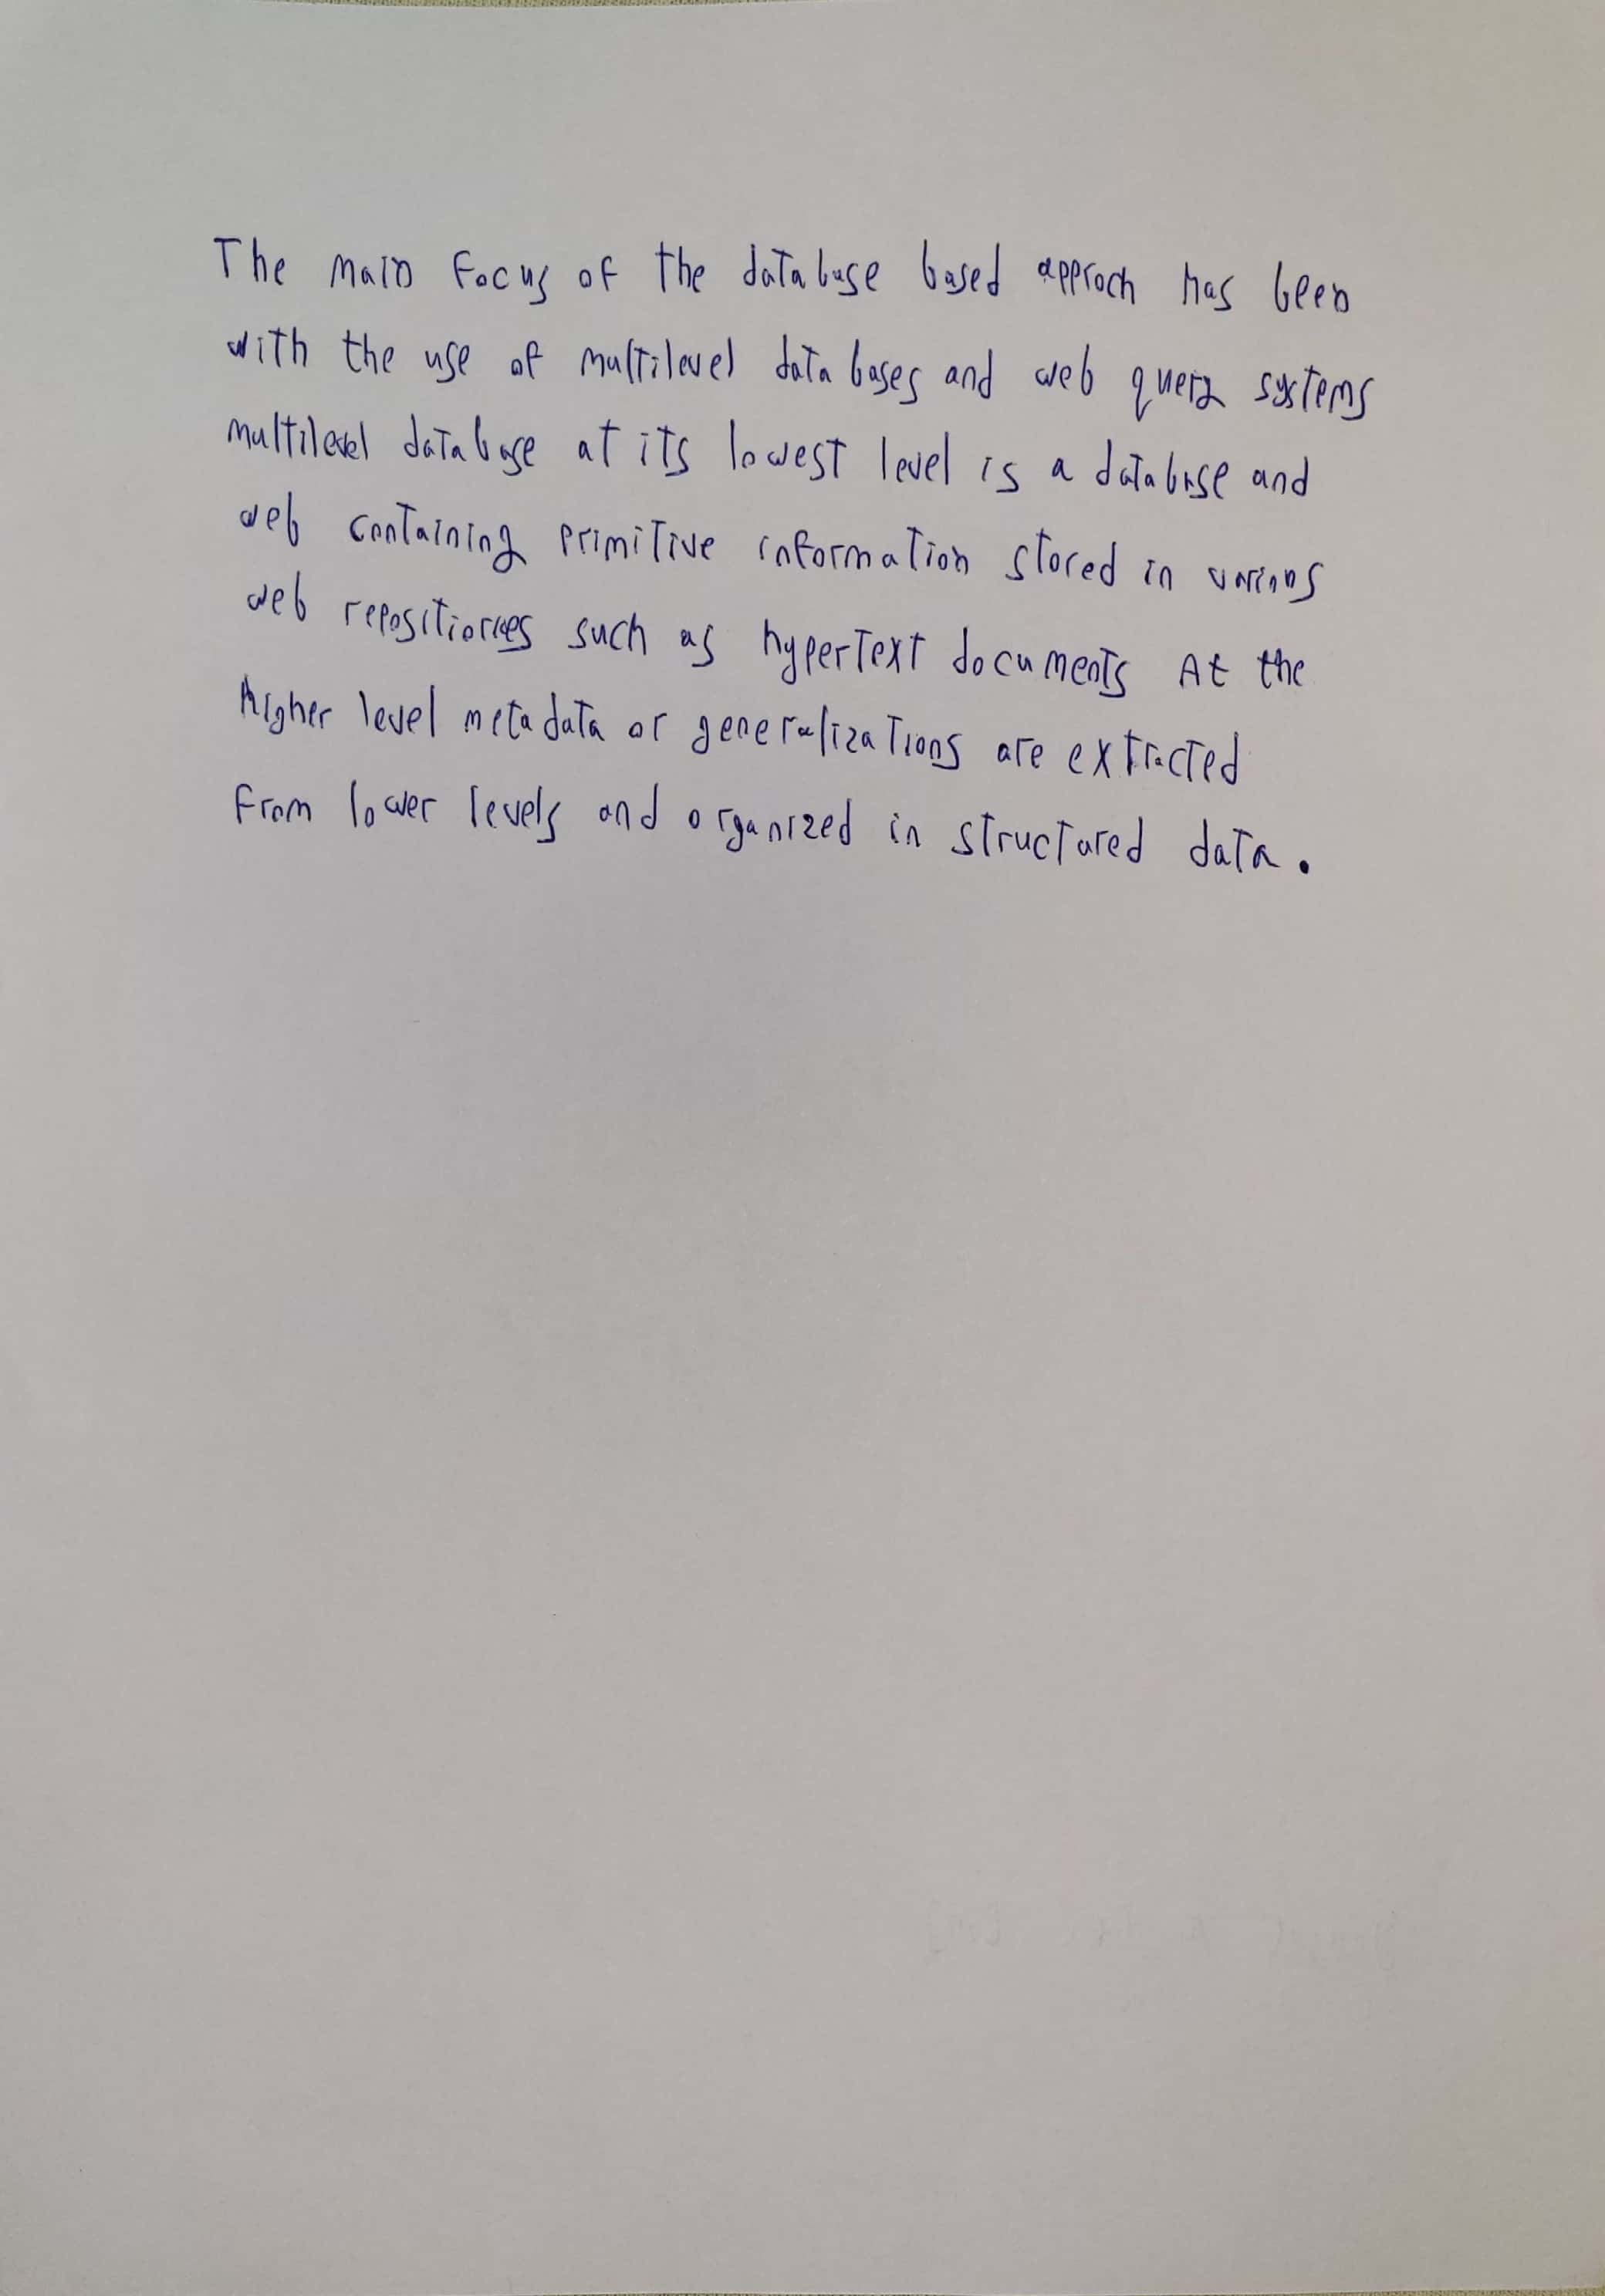 The main focus of the database based approch has been
with the use of multilevel databases and web query systems
multilevel database at its lowest level is a database and
web containing primitive information stored in various
web repositiories such as hypertext documents At the
higher level metadata or generalizations are extracted
from lower levels and organized in structured data.